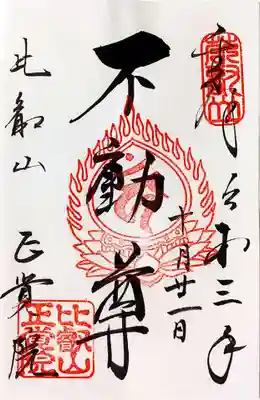 奉拝 令和三年
十一月廿一日
不動尊
比叡山 正覚院
比叡山
正覚院